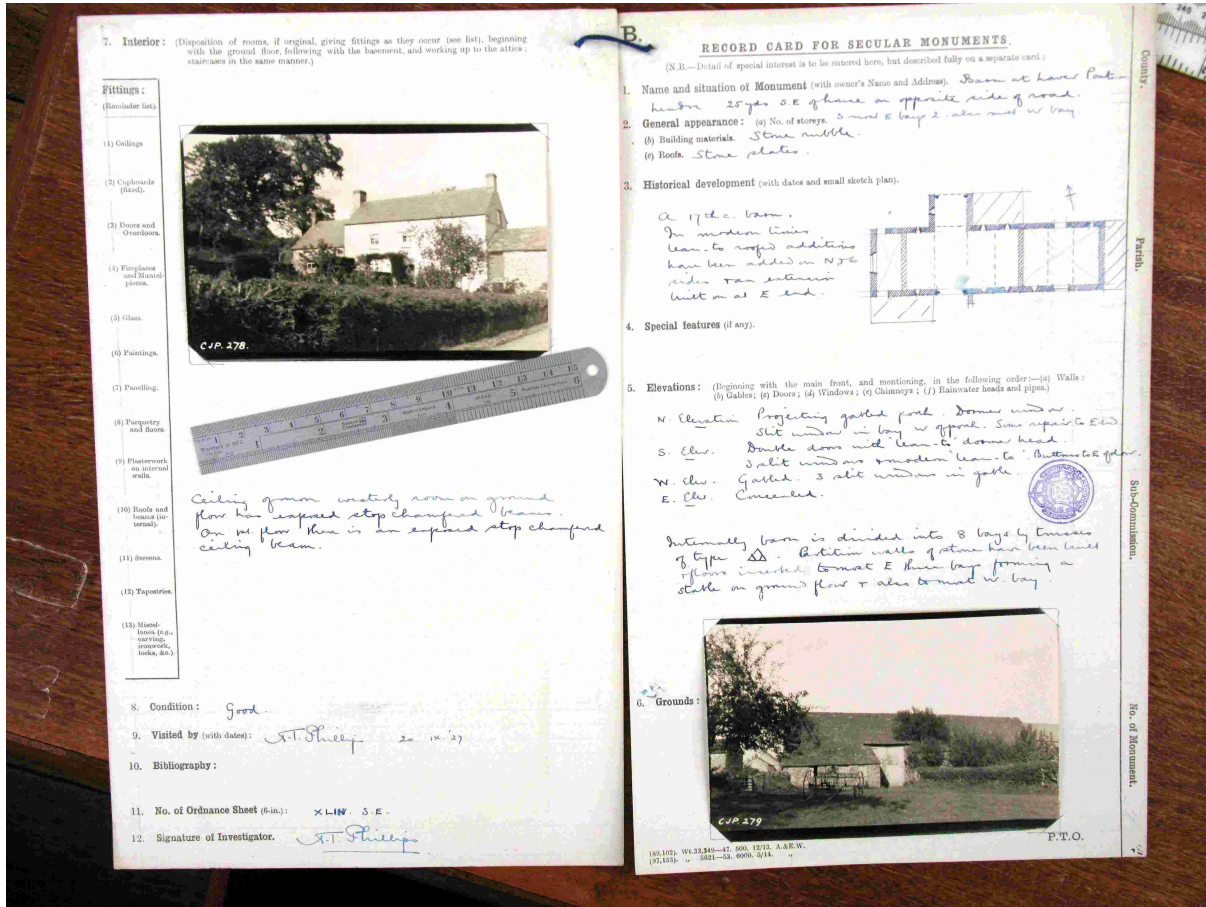 7. Interior : (Disposition of rooms, if original, giving fittings as they occur (see list), beginning
with the ground floor, following with the basement, and working up to the attics ;
staircases in the same manner.)
Fittings :
(Reminder list).
(1) Ceilings
(2) Cupboards
(fixed).
(3) Doors and
Overdoors.
(4) Fireplaces
and Mantel-
pieces.
(5) Glass.
(6) Paintings.
(7) Panelling.
(8) Parquetry
and floors.
(9) Plasterwork
on internal
walls.
(10) Roofs and
beams (in-
ternal).
(11) Screens.
(12) Tapestries.
(13) Miscel-
lanea (e.g.,
carving,
ironwork,
locks, &c.).
CJP. 278.
1 2 3 4 5 6 7 8 9 10 11 12 13 14 15
1 2 3 4 5 6
Ceiling of most westerly room on ground
floor has exposed stop chamfered beams.
On 1st. floor there is an exposed stop chamfered
ceiling beam.
8. Condition : Good
9. Visited by (with dates) : A.T. Phillips 20 . ix. '27
10. Bibliography :
11. No. of Ordnance Sheet (6-in.) : S.E.
12. Signature of Investigator. A.T. Phillips
B.
RECORD CARD FOR SECULAR MONUMENTS.
(N.B.—Detail of special interest is to be entered here, but described fully on a separate card.)
1. Name and situation of Monument (with owner's Name and Address). Barn at
25 yds S.E of house on opposite side of road.
2. General appearance : (a) No. of storeys. 3 most E bays 2. also most W bay.
(b) Building materials. Stone rubble.
(c) Roofs. Stone plates.
3. Historical development (with dates and small sketch plan).
A 17th c. barn.
In modern times
lean-to roofed additions
have been added on
sides + an extension
built on at E end.
4. Special features (if any).
5. Elevations : (Beginning with the main front, and mentioning, in the following order :—(a) Walls :
(b) Gables ; (c) Doors ; (d) Windows ; (e) Chimneys ; (f) Rainwater heads and pipes.)
N. Elevation Projecting gabled porch. Dormer window.
Slit window in bay W of porch. Some repair to E end
S. Elev. Double doors with 'lean-to' dormer head.
3 slit windows + modern 'lean-to'. Buttress to E of door.
W. Elev. Gabled. 3 slit windows in gable.
E. Elev. Concealed.
Internally barn is divided into 8 bays by trusses
of type . Partition walls of stone have been built
+ floors inserted to most E three bays forming a
stable on ground floor + also to most W. bay.
6. Grounds :
CJP. 279
P.T.O.
(89,102). Wt.33,349—47. 500. 12/13. A.&E.W.
(97,153). „ 5621—53. 6000. 5/14. „
County.
Parish.
Sub-Commission.
No. of Monument.